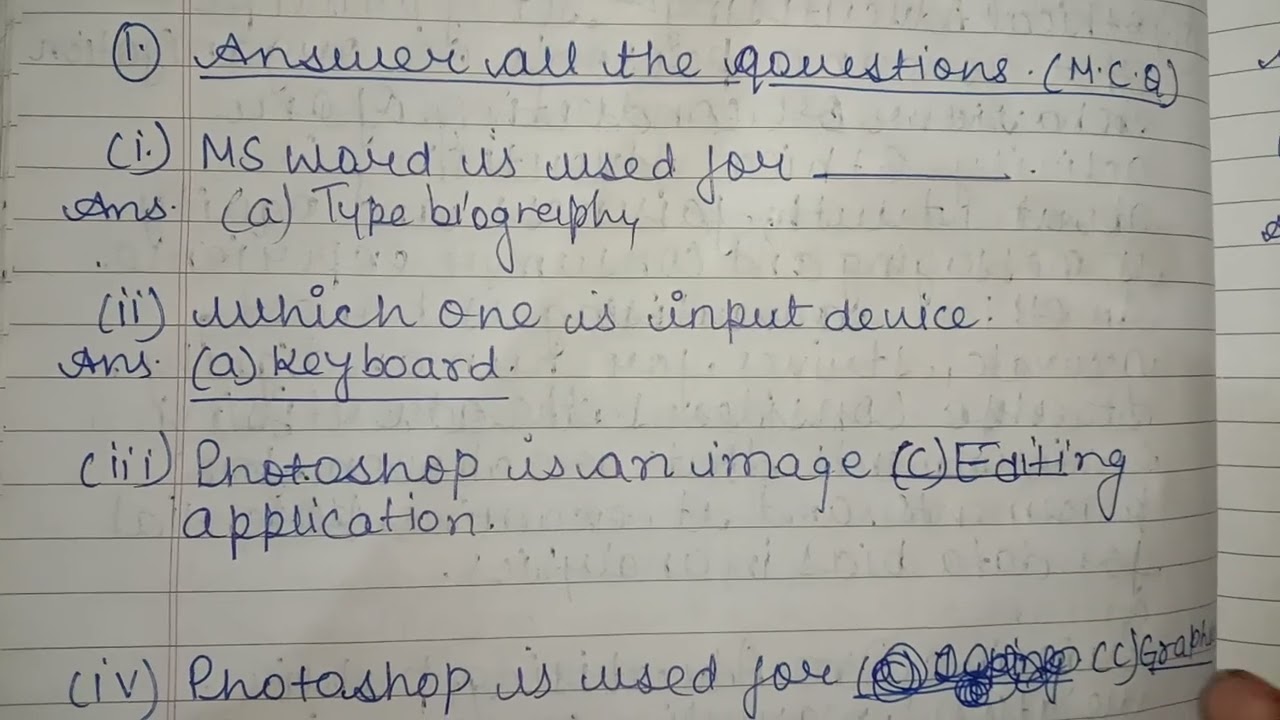 1. Answer all the qouestions. (M.C.Q)
(i.) MS Word is used for ________.
Ans. (a) Type biography
(ii) Which one is input device:
Ans. (a) Keyboard.
(iii) Photoshop is an image (C) Editing
application.
(iv) Photoshop is used for (C)